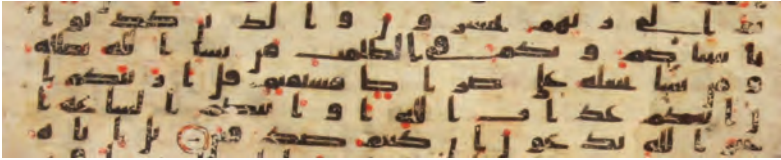 ثم الى ربهم يحشرون والذين كذبوا
بايتنا صم وبكم في الظلمت من يشا الله يضلله
ومن يشا يجعله على صرط مستقيم قل اريتكم ا
ن اتيكم عذاب الله او اتتكم الساعة ا
غير الله تدعون ان كنتم صدقين بل اياه